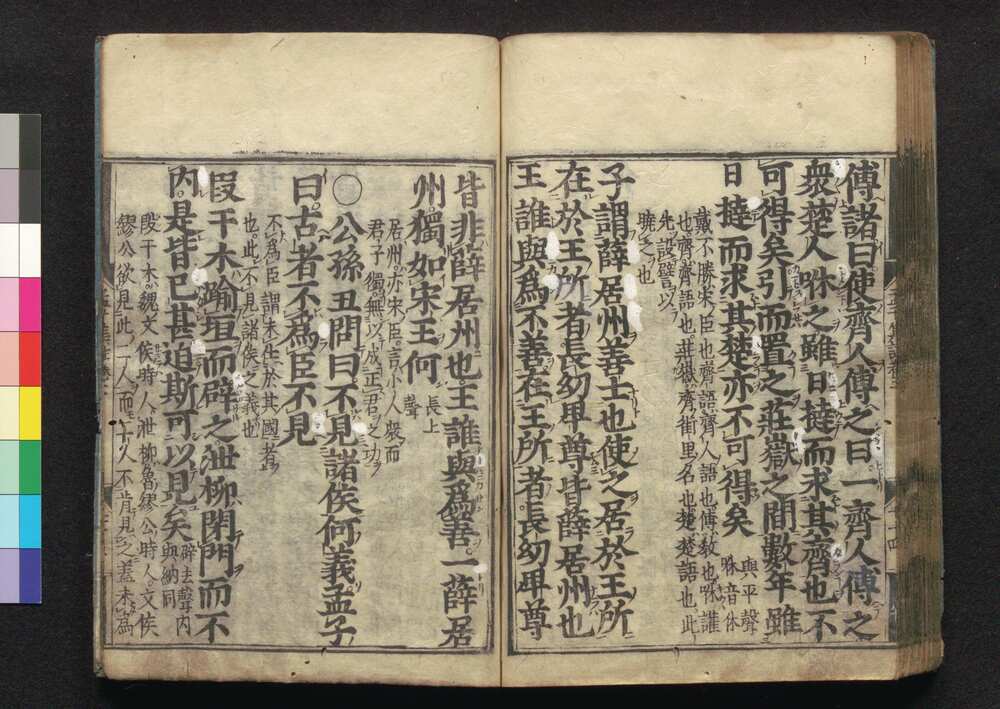 傅諸曰使齊人傅之曰一齊人傅之
衆楚人咻之雖日撻而求其齊也不
可得矣引而置之莊嶽之間數年雖
日撻而求其楚亦不可得矣
與平聲
咻音休
戴不勝宋臣也齊語齊人語也傅教也咻讙
也齊齊語也莊嶽齊街里名也楚楚語也此
先設譬以
曉之也
子謂薛居州善士也使之居於王所
在於王所者長幼卑尊皆薛居州也
王誰與爲不善在王所者長幼卑尊
皆非薛居州也王誰與爲善一薛居
州獨如宋王何
長上
聲
居州亦宋臣言小人衆而
君子獨無以成正君之功
○公孫丑問曰不見諸侯何義孟子
曰古者不爲臣不見
不爲臣謂未仕於其國者
也此不見諸侯之義也
段干木踰垣而辟之泄柳閉門而不
内是皆已甚迫斯可以見矣
辟去聲内
與納同
段干木魏文侯時人泄柳魯繆公時人文侯
繆公欲見此二人而二人不肯見之蓋未爲